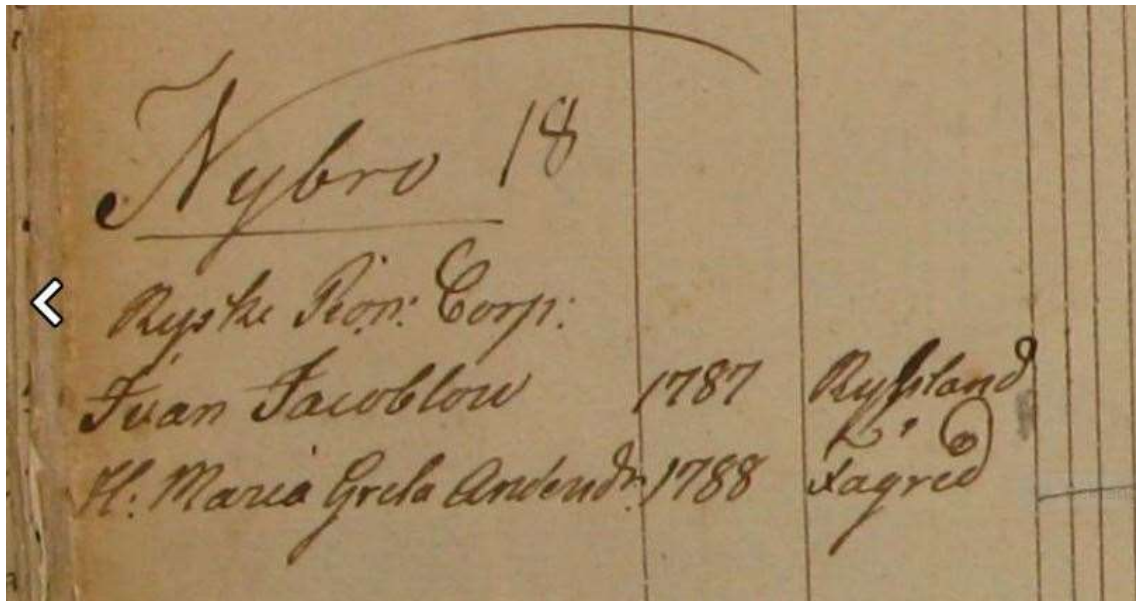 Nybro 18
Ryske Pion: Corp:
Ivan Jacoblow 1787 Ryssland
H: Maria Greta 1788 Fagred